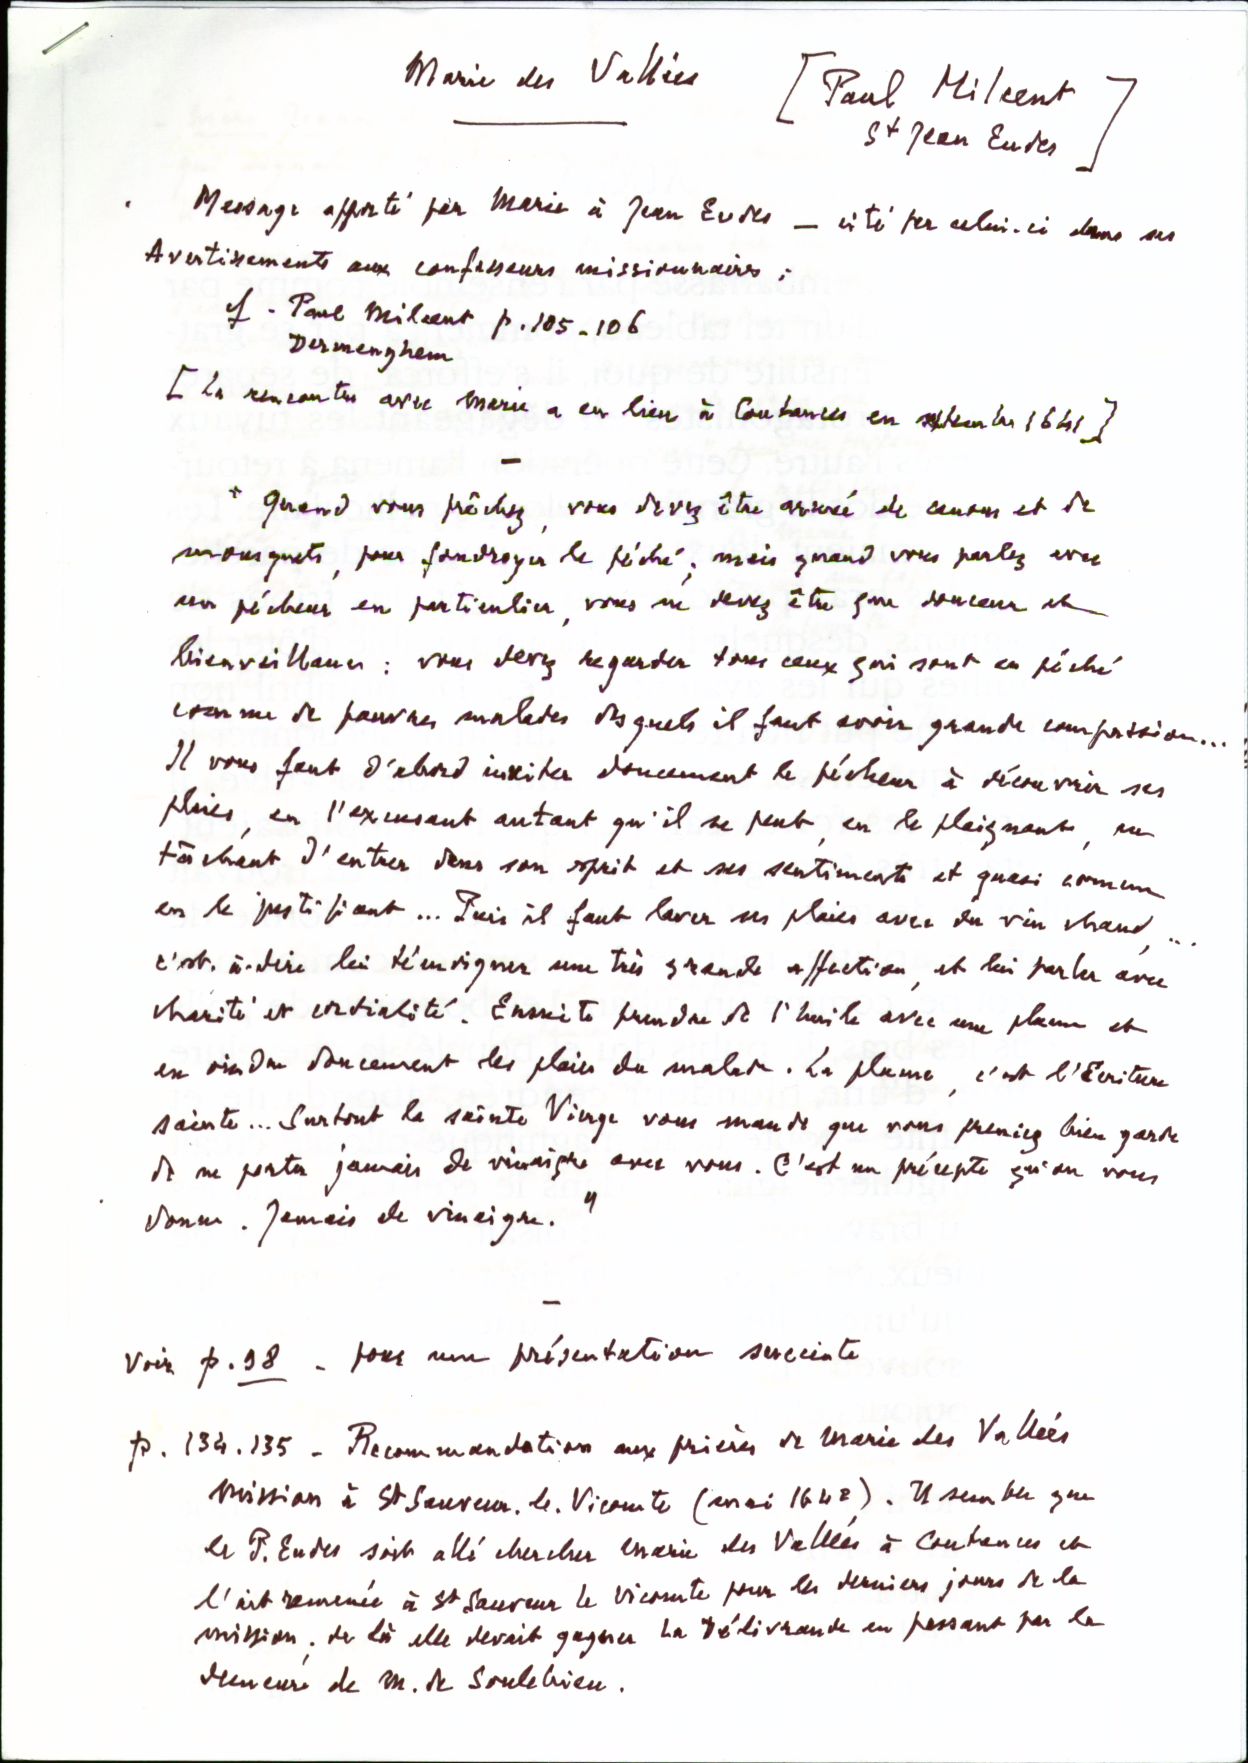 Marie des Vallées
[Paul Milcent
St Jean Eudes]
Message apporté par Marie à Jean Eudes _ cité par celui-ci dans ses
Avertissements aux confesseurs missionnaires :
cf - Paul Milcent p. 105-106
Dermenghem
[La rencontre avec Marie a eu lieu à Coutances en septembre 1641]
–
" Quand vous prêchez, vous devez être armé de canons et de
mousquets, pour foudroyer le péché ; mais quand vous parlez avec
un pécheur en particulier, vous ne devez être que douceur et
bienveillance : vous devez regarder tous ceux qui sont en péché
comme de pauvres malades desquels il faut avoir grande compassion...
Il vous faut d'abord inciter doucement le pécheur à découvrir ses
plaies, en l'excusant autant qu'il se peut, en le plaignant, en
tâchant d'entrer dans son esprit et ses sentiments et quasi comme
en le justifiant... Puis il faut laver ses plaies avec du vin chaud,...
c'est-à-dire lui témoigner une très grande affection, et lui parler avec
charité et cordialité. Ensuite prendre de l'huile avec une plume et
en oindre doucement les plaies du malade. La plume, c'est l'Ecriture
sainte... Surtout la sainte Vierge vous mande que vous preniez bien garde
de ne porter jamais de vinaigre avec vous. C'est un précepte qu'on vous
donne. Jamais de vinaigre. "
–
Voir p. 98 - pour une présentation succincte
p. 134.135 - Recommandation aux prières de Marie des Vallées
Mission à St Sauveur-le-Vicomte (mai 1642). Il semble que
le P. Eudes soit allé chercher Marie des Vallées à Coutances et
l'ait ramenée à St Sauveur le Vicomte pour les derniers jours de la
mission ; de là elle devait gagner La Délivrande en passant par la
demeure de M. de Soulebieu.